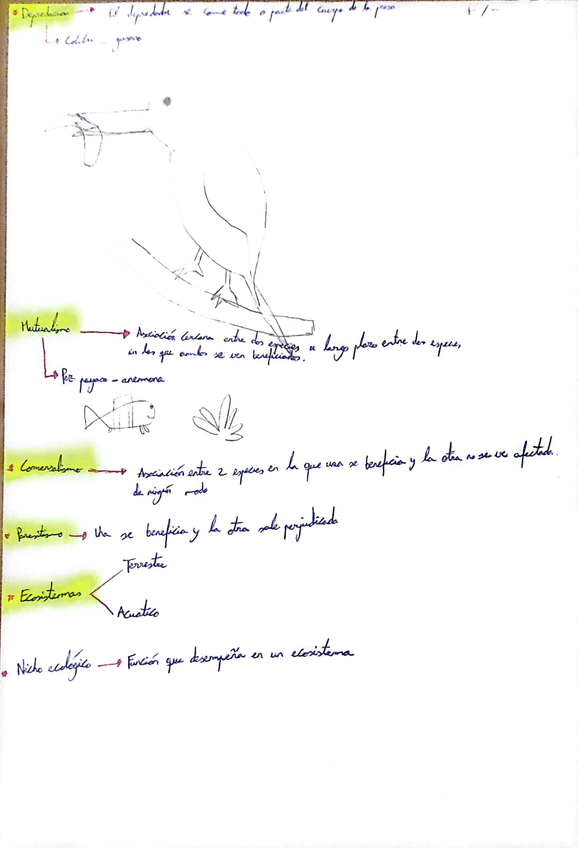 Depredación → El depredador se come todo o parte del cuerpo de la presa + / -
Colibrí - gusano
Mutualismo → Asociación cercana entre dos especies a largo plazo entre dos especies,
en las que ambos se ven beneficiados.
Pez payaso - anemona
Comensalismo → Asociación entre 2 especies en la que una se beneficia y la otra no se ve afectada.
de ningún modo
Parasitismo → Una se beneficia y la otra sale perjudicada
Terrestre
Ecosistemas
Acuatico
Nicho ecológico → Función que desempeña en un ecosistema